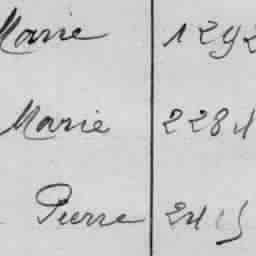 Marie 1292
Marie 2284
Pierre